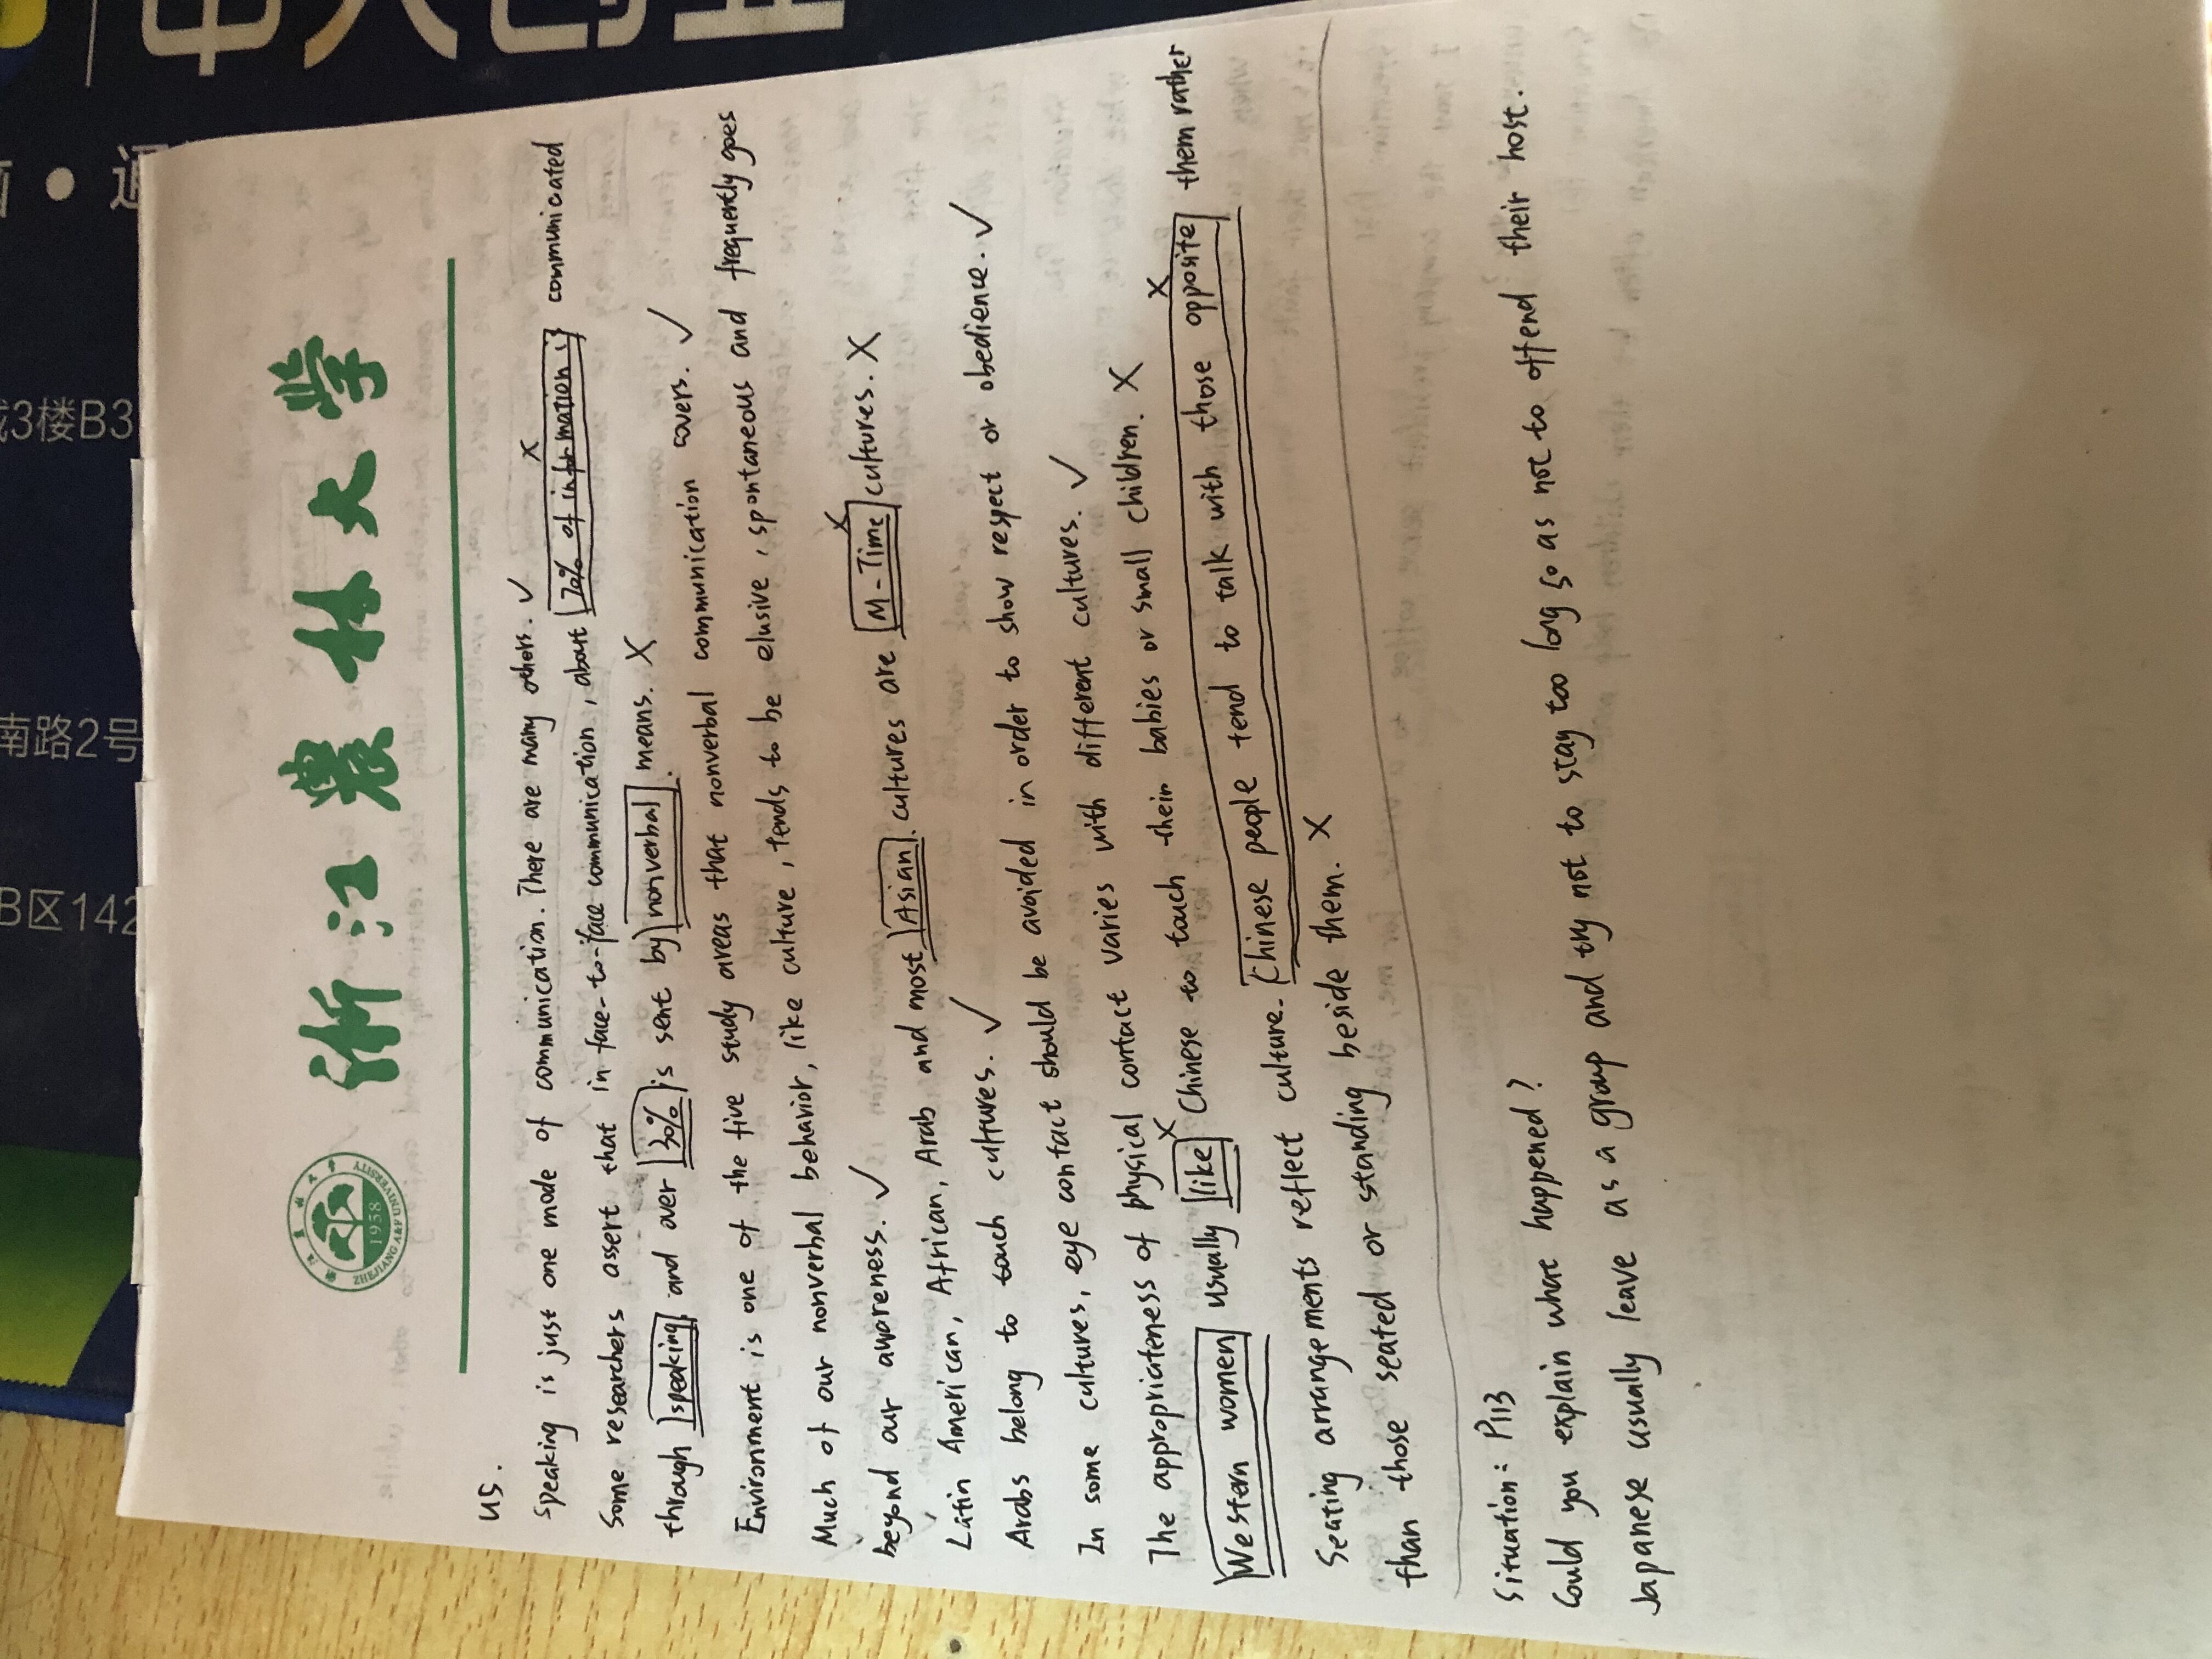 浙江农林大学
1958
ZHEJIANG A&F UNIVERSITY
us.
Speaking is just one mode of communication. There are many others. ✓
Some researchers assert that in face-to-face communication, about 70% of information is communicated
through speaking and over 30% is sent by nonverbal means. X
Environment is one of the five study areas that nonverbal communication covers. ✓
Much of our nonverbal behavior, like culture, tends to be elusive, spontaneous and frequently goes
beyond our awareness. ✓
Latin American, African, Arab and most Asian cultures are M-Time cultures. X
Arabs belong to touch cultures. ✓
In some cultures, eye contact should be avoided in order to show respect or obedience. ✓
The appropriateness of physical contact varies with different cultures. ✓
Western women usually like Chinese to touch their babies or small children. X
Seating arrangements reflect culture. Chinese people tend to talk with those opposite them rather
than those seated or standing beside them. X
Situation: P113
Could you explain what happened?
Japanese usually leave as a group and try not to stay too long so as not to offend their host.
3楼B3
南路2号
B区142